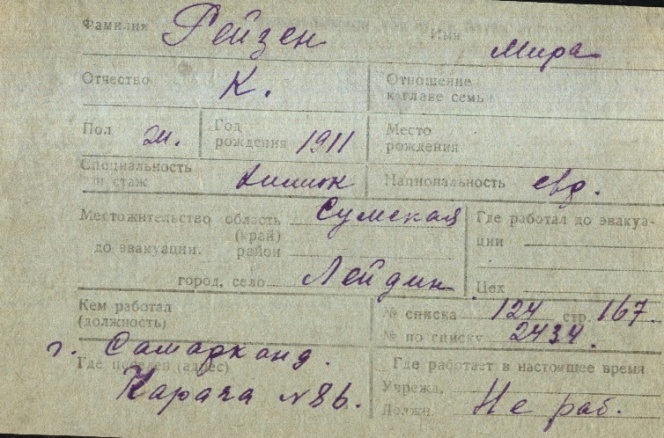 Фамилия Рейзен Имя Мира
Отчество К. Отношение к главе семьи
Пол ж. Год рождения 1911 Место рождения
Специальность и стаж химик Национальность евр.
Местожительство область Сумская Где работал до эвакуа-
(край) ции
до эвакуации. район
город, село Лейдин Цех
Кем работал № списка 124 стр. 167
(должность) № по списку 2434.
г. Самарканд.
Где поселен (адрес) Где работает в настоящее время
Карача №86. Учрежд.
Должн. Не раб.